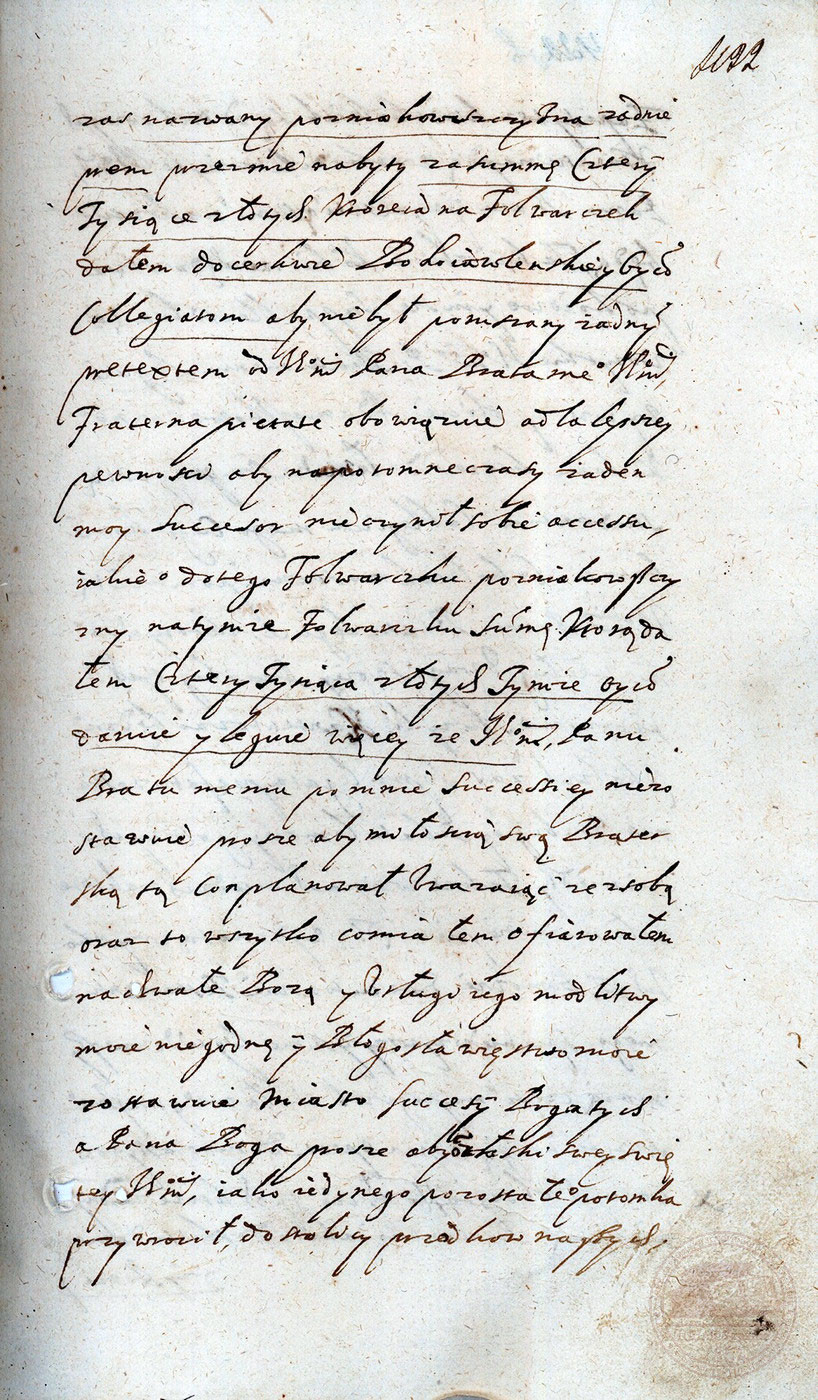 zas nazwany pozniakowszczyzna zadnie
prem przezmie nabyty zasummę Cztery
Tysiące złotych Ktorecia na Folwarczek
dałem docerkwie
Collegiatom aby niebył poruszany żadny
pretextem od Pana Brata me°
Fraterna pietate obowiązuie adla lepszey
pewnosci aby napotomne czasy żaden
moy Successor nieczynił sobie accessu,
iakie° dotego Folwarczku pozniakowszczy
zny natymze Folwarczku Sumę Ktorą da
łem Cztery Tysiąca złotych Tymże oyco
daruie y leguie więcey że Panu
Bratu memu po mnie Successiey niezo
stawuie prosze aby miłoscią swą Bracer
ską tą Conplanował Vwazaiąc zezsobą
oraz to wszytko comia łem ofiarowałem
nachwałe Bozą y Vsługi iego modlitwy
moie niegodnę ÿ Błogosławięstwo moie
zostawuie miasto Successÿ Bogatych
a Pana Boga prosze aby złaski swey swię
tey iako iedynego pozostałe° potomka
przywrocił, dostolicy przodkow naszych,